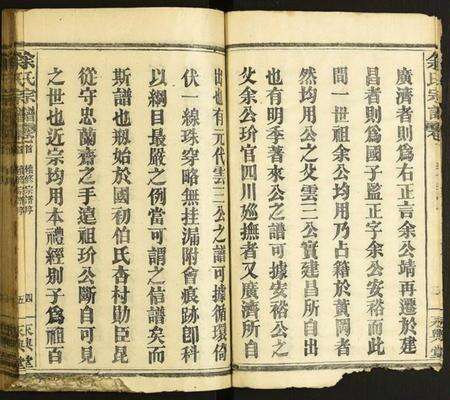 廣濟者則為右正言余公靖再遷於建
昌者則為國子監正字余公安裕而此
間一世祖余公均用乃占籍於黃岡者
然均用公之父雲二公實建昌所自出
也有明季著來公之譜可據安裕公之
父余公玠官四川巡撫者又廣濟所自
出也有元代雲二公之譜可據循環倚
伏一線珠穿略無挂漏附會痕跡即科
以綱目最嚴之例當可謂之信譜矣而
斯譜也剏始於國初伯氏杏村勛臣昆
從守忠蘭齋之手遠祖玠公斷自可見
之世也近宗均用本禮經別子為祖百
余氏宗譜
卷首
四
五
永興堂